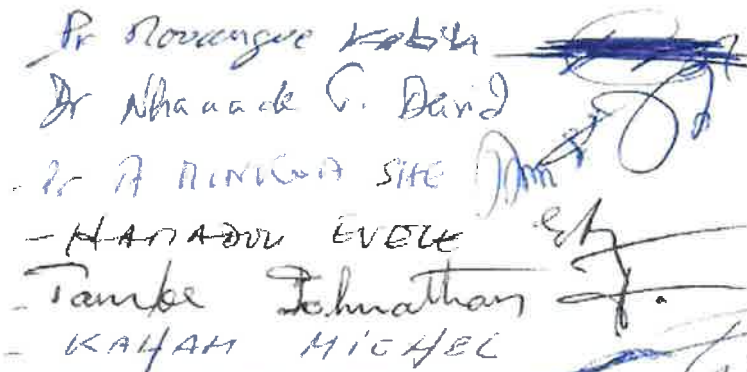 Pr Mouangue Kobila
Dr Nhanack G. David
- Pr A MINKOA SHE
- HAMADOU EVELE
- Tambe Johnathan
- KAHAM MICHEL